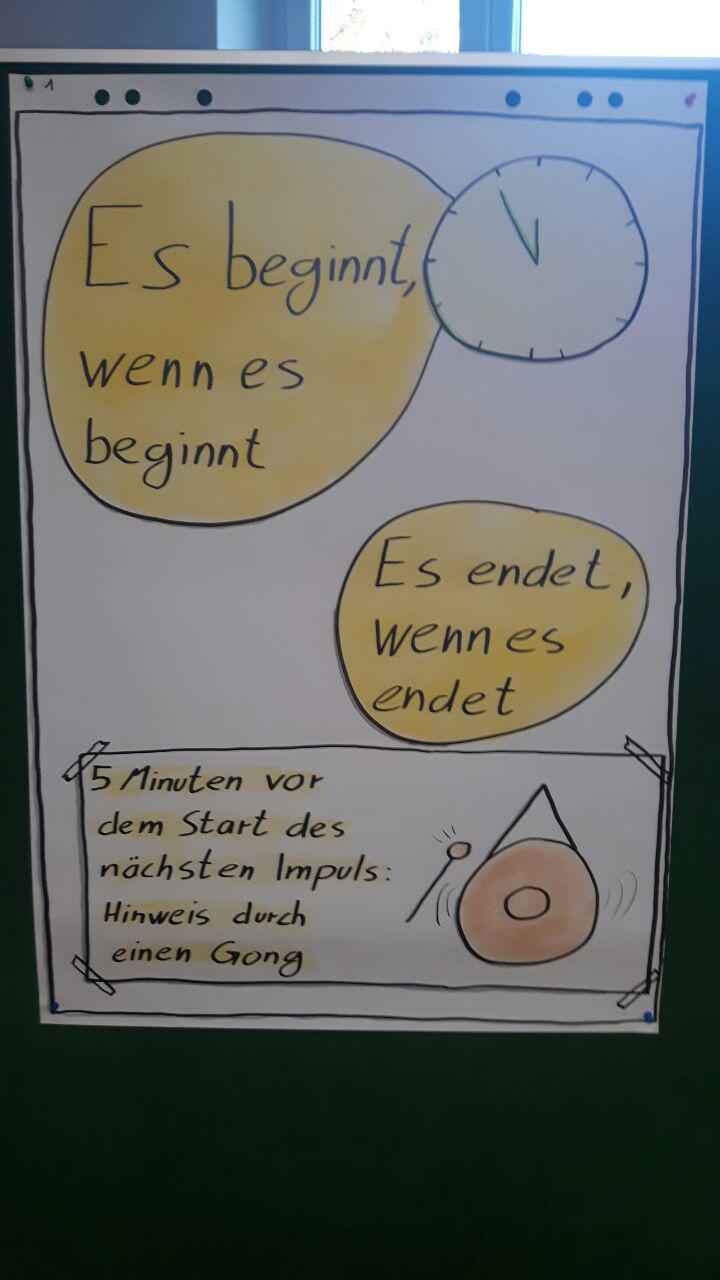 1
Es beginnt,
wenn es
beginnt
Es endet,
wenn es
endet
5 Minuten vor
dem Start des
nächsten Impuls:
Hinweis durch
einen Gong